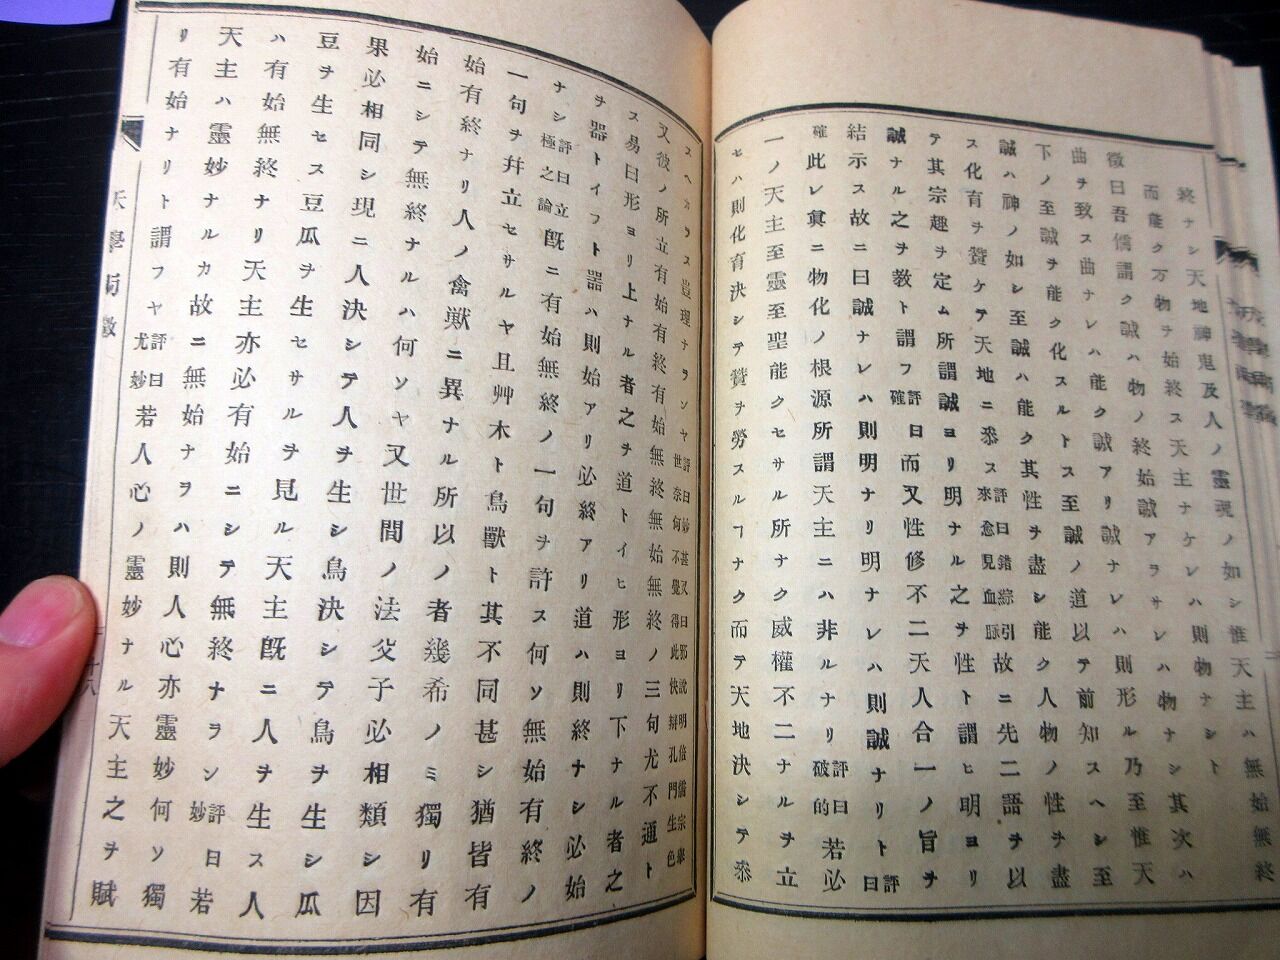 終ナシ天地神鬼及人ノ靈魂ノ如シ惟天主ハ無始無終
而能ク万物ヲ始終ス天主ナケレハ則物ナシト
徵曰吾儒謂ク誠ハ物ノ終始誠アラサレハ物ナシ其次ハ
曲ヲ致ス曲ナレハ能ク誠アリ誠ナレハ則形ル乃至惟天
下ノ至誠ヲ能ク化スルトス至誠ノ道以テ前知スヘシ至
誠ハ神ノ如シ至誠ハ能ク其性ヲ盡シ能ク人物ノ性ヲ盡
ス化育ヲ贊ケテ天地ニ叅ス評曰錯綜引來愈見血脈故ニ先二語ヲ以
テ其宗趣ヲ定ム所謂誠ヨリ明ナル之ヲ性ト謂ヒ明ヨリ
誠ナル之ヲ教ト謂フ評曰確而又性修不二天人合一ノ旨ヲ
結示ス故ニ曰誠ナレハ則明ナリ明ナレハ則誠ナリト評曰
確此レ眞ニ物化ノ根源所謂天主ニハ非ルナリ評曰破的若必
一ノ天主至靈至聖能クセサル所ナク威權不二ナルヲ立
セハ則化育決シテ贊ヲ勞スルヿナク而テ天地決シテ叅
スヘカラス豈理ナランヤ評曰妙甚又曰邪說明倍儒宗擧世奈何不覺得此快辯孔門生色
又彼ノ所立有始有終有始無終無始無終ノ三句尤不通ト
ス易曰形ヨリ上ナル者之ヲ道トイヒ形ヨリ下ナル者之
ヲ器トイフト噐ハ則始アリ必終アリ道ハ則終ナシ必始
ナシ評曰立極之論旣ニ有始無終ノ一句ヲ許ス何ソ無始有終ノ
一句ヲ幷立セサルヤ且艸木ト鳥獸ト其不同甚シ猶皆有
始有終ナリ人ノ禽獣ニ異ナル所以ノ者幾希ノミ獨リ有
始ニシテ無終ナルハ何ソヤ又世間ノ法父子必相類シ因
果必相同シ現ニ人決シテ人ヲ生シ鳥決シテ鳥ヲ生シ瓜
豆ヲ生セス豆瓜ヲ生セサルヲ見ル天主旣ニ人ヲ生ス人
ハ有始無終ナリ天主亦必有始ニシテ無終ナラン評曰妙若
天主ハ靈妙ナルカ故ニ無始ナヲハ則人心亦靈妙何ソ獨
リ有始ナリト謂フヤ評曰尤妙若人心ノ靈妙ナル天主之ヲ賦